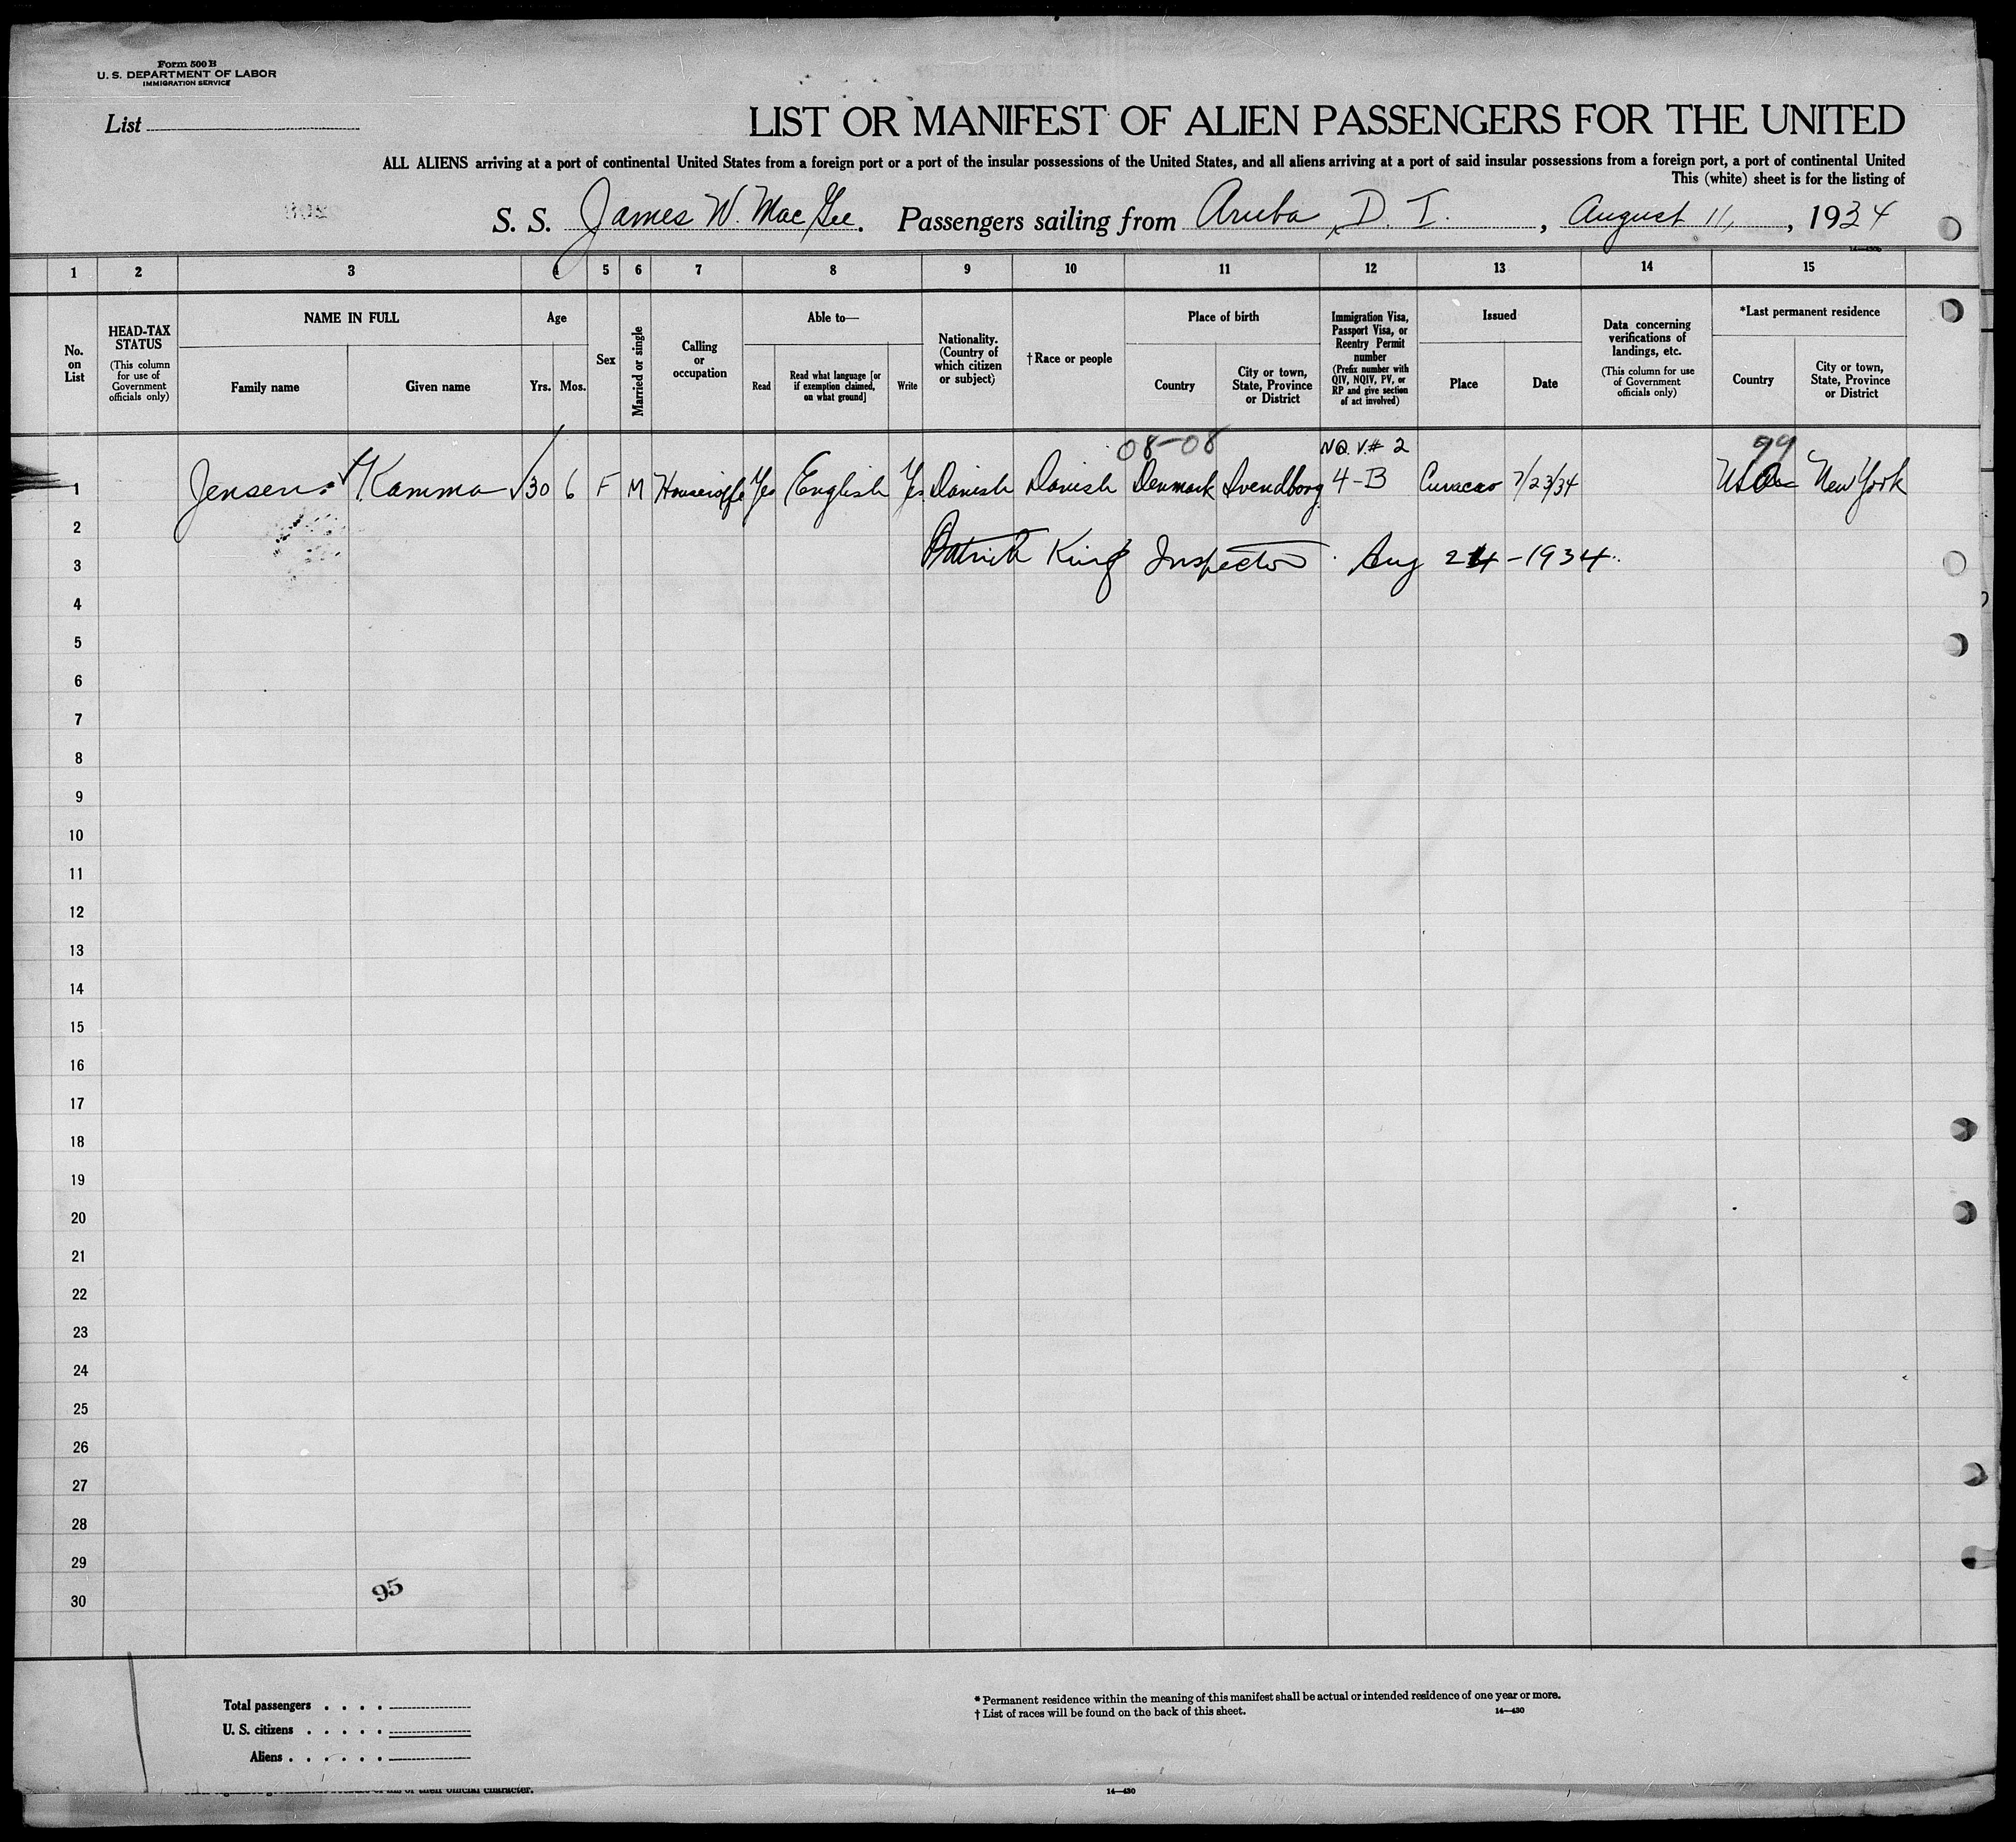 Form 500 B
U. S. DEPARTMENT OF LABOR
IMMIGRATION SERVICE
List
LIST OR MANIFEST OF ALIEN PASSENGERS FOR THE UNITED
ALL ALIENS arriving at a port of continental United States from a foreign port or a port of the insular possessions of the United States, and all aliens arriving at a port of said insular possessions from a foreign port, a port of continental United
This (white) sheet is for the listing of
S. S. James W. Mac Gee. Passengers sailing from Aruba, D. I., August 11, 1934
1 2 3 4 5 6 7 8 9 10 11 12 13 14 15
No. on List
HEAD-TAX STATUS
(This column for use of Government officials only)
NAME IN FULL
Family name
Given name
Age
Yrs.
Mos.
Sex
Married or single
Calling or occupation
Able to—
Read
Read what language [or if exemption claimed, on what ground]
Write
Nationality. (Country of which citizen or subject)
†Race or people
Place of birth
Country
City or town, State, Province or District
Immigration Visa, Passport Visa, or Reentry Permit number
(Prefix number with QIV, NQIV, PV, or RP and give section of act involved)
Issued
Place
Date
Data concerning verifications of landings, etc.
(This column for use of Government officials only)
*Last permanent residence
Country
City or town, State, Province or District
08-08 NQ. V.# 2 99
1 Jensen Kamma 30 6 F M Housewife Yes English Yes Danish Danish Denmark Svendborg 4-B Curacao 7/23/34 USA New York
2
3 Patrick King Inspector. Aug 24-1934.
4
5
6
7
8
9
10
11
12
13
14
15
16
17
18
19
20
21
22
23
24
25
26
27
28
29
30
95
Total passengers
U. S. citizens
Aliens
* Permanent residence within the meaning of this manifest shall be actual or intended residence of one year or more.
† List of races will be found on the back of this sheet.
14—430
14—430